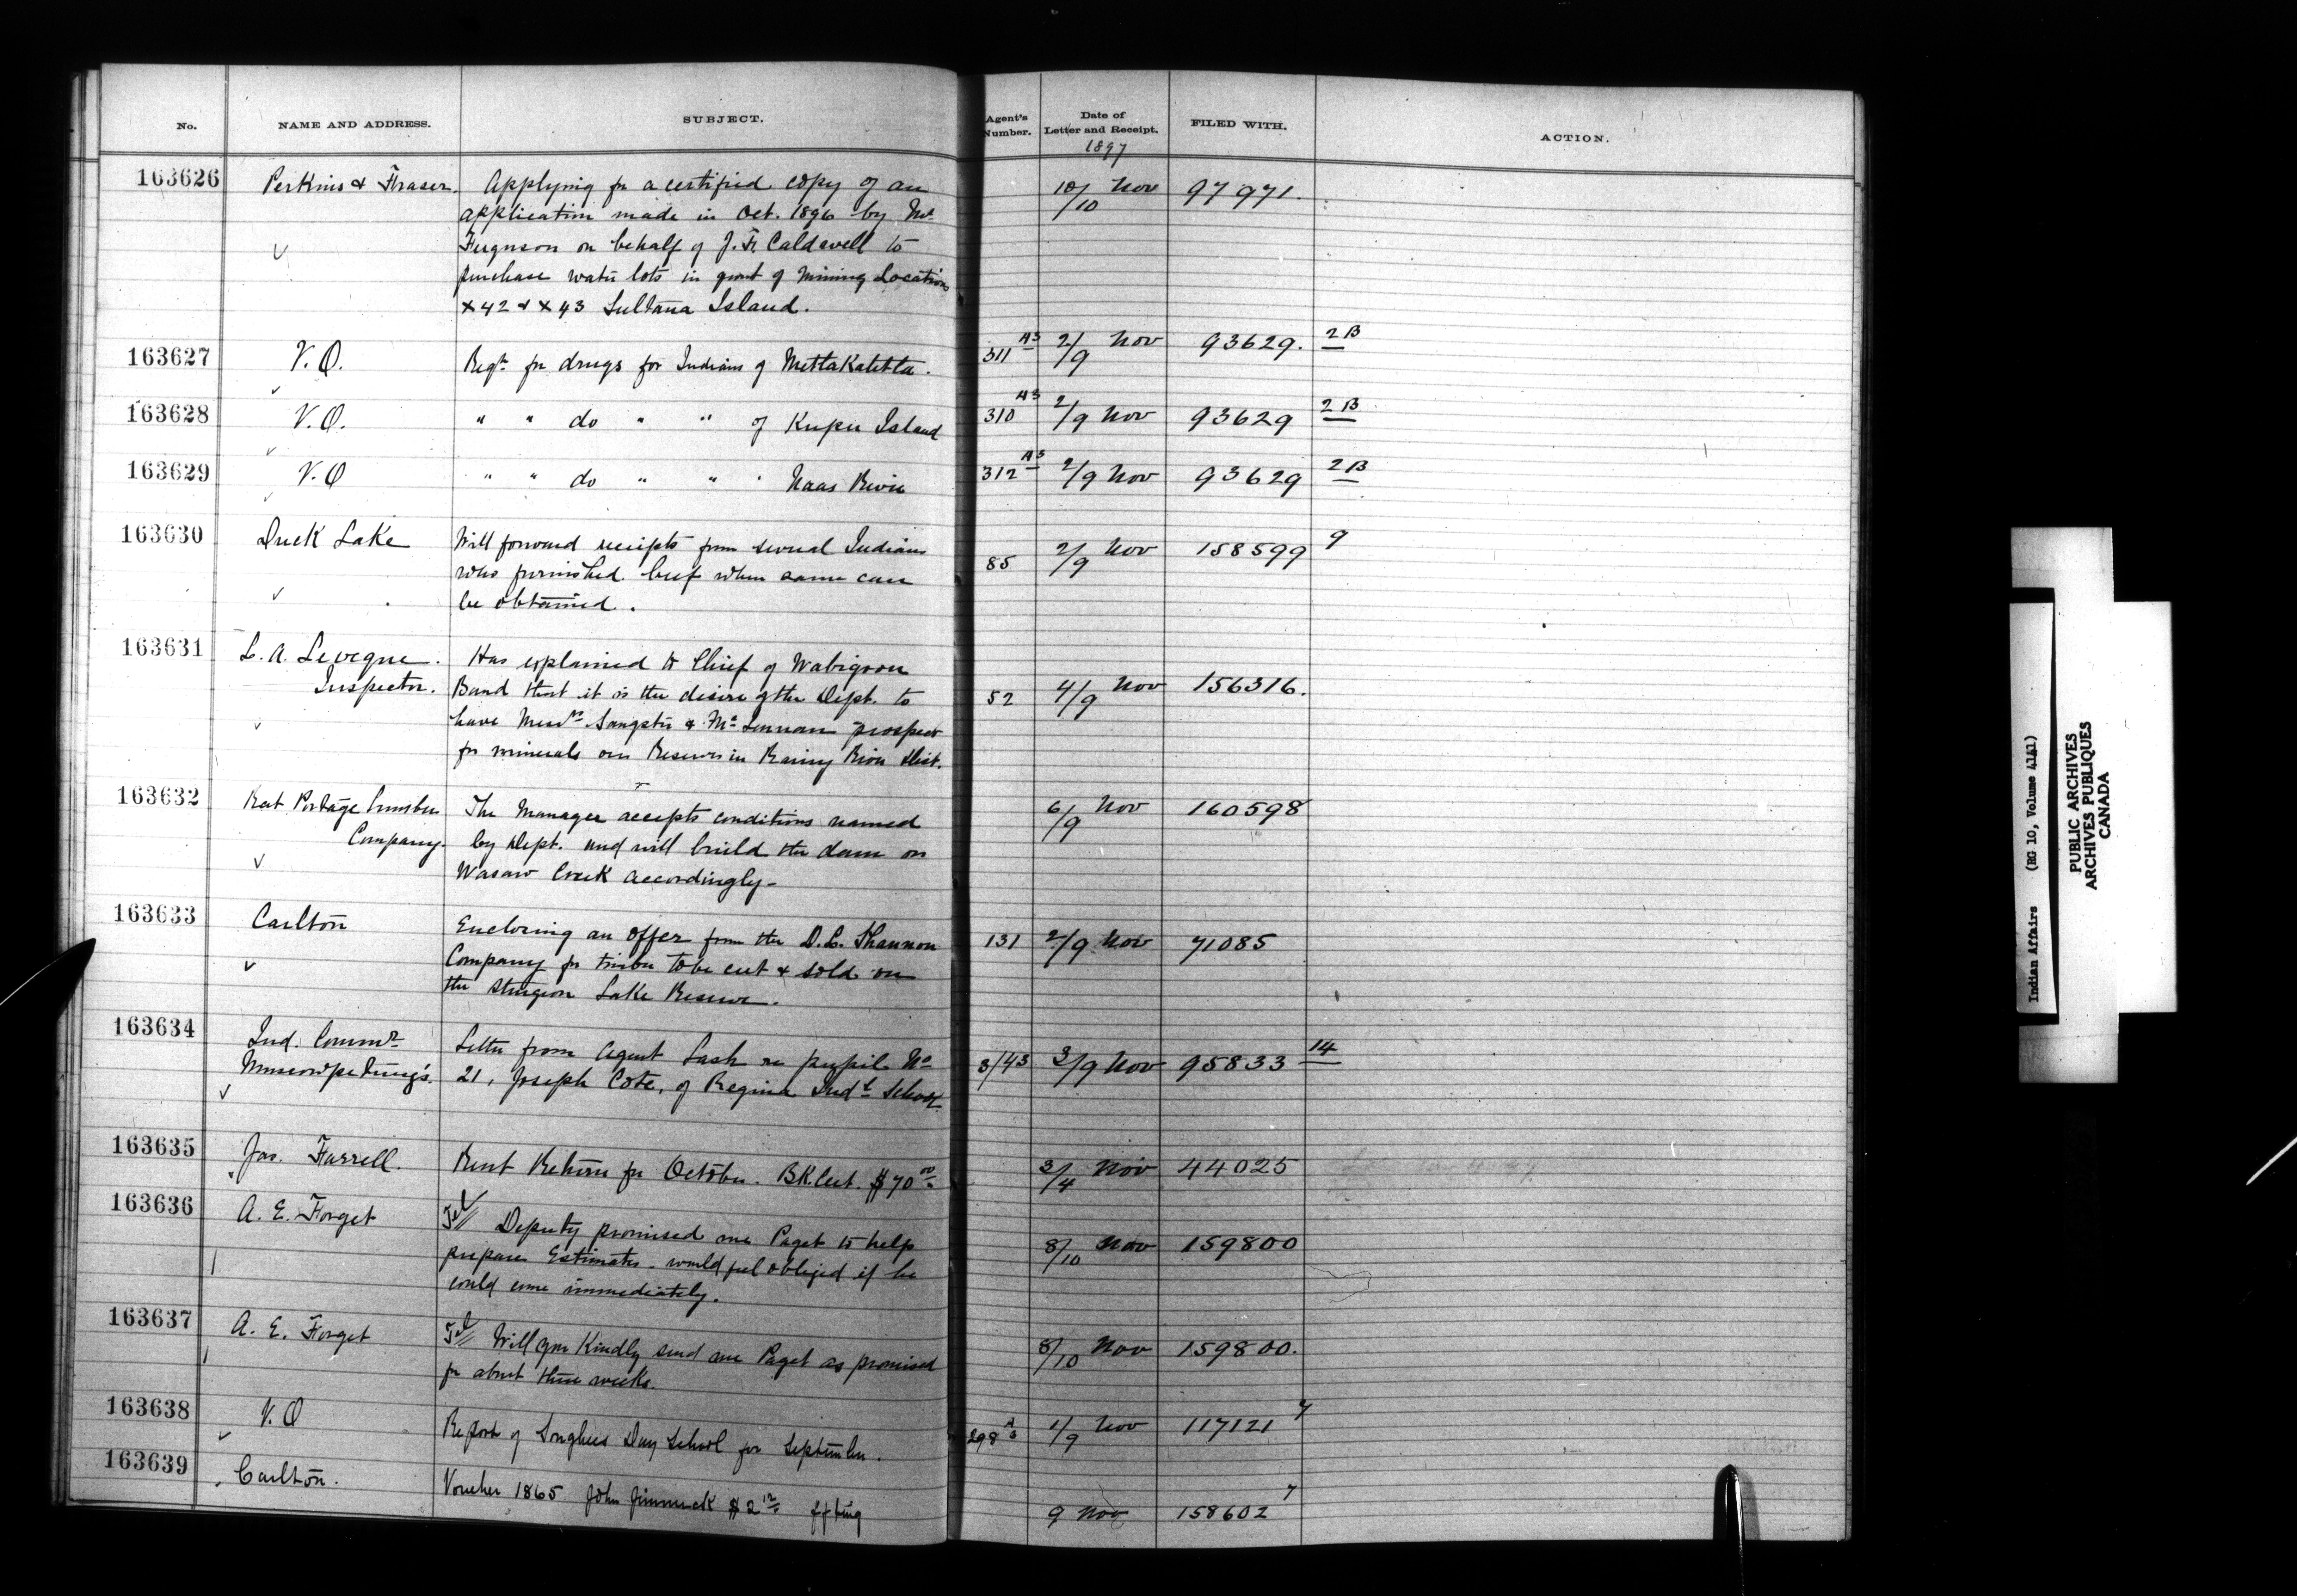 No. NAME AND ADDRESS. SUBJECT. Agent's Number. Date of Letter and Receipt. FILED WITH. ACTION.
1897
163626 Perkins & Fraser. Applying for a certified copy of an 10/10 Nov 97971.
application made in Oct. 1896 by Mr
Ferguson on behalf of J. F. Caldwell to
purchase water lots in front of Mining Locations
X42 & X43 Sultana Island.
163627 V.O. Reqn for drugs for Indians of Mettakahtla. 311 A3 2/9 Nov 93629. 2B
163628 V.O. " " do " " of Kuper Island 310 A3 2/9 Nov 93629 2B
163629 V.O " " do " " " Naas River 312 A3 2/9 Nov 93629 2B
163630 Duck Lake Will forward receipts from several Indians 85 2/9 Nov 158599 9
who furnished beef when same can
be obtained.
163631 L. A. Leveque. Has explained to Chief of Wabigoon 52 4/9 Nov 156316.
Inspector. Band that it is the desire of the Dept. to
have Messrs Sangster & McLennan prospect
for minerals on Reserves in Rainy River Dist.
163632 Rat Portage Lumber The Manager accepts conditions named 6/9 Nov 160598
Company. by Dept. and will build the dam on
Wasaw Creek accordingly-
163633 Carlton Enclosing an offer from the D. L. Shannon 131 2/9 Nov 71085
Company for timber to be cut & sold on
the Sturgeon Lake Reserve.
163634 Ind. Commr Letter from Agent Lash re pupil No 8/43 3/9 Nov 95833 14
Muscowpetung's. 21, Joseph Cote, of Regina Indl School
163635 Jas. Farrell. Rent Return for October. BK. Cert. $70 00 3/4 Nov 44025
163636 A. E. Forget Tel// Deputy promised me Paget to help 8/10 Nov 159800
prepare Estimates. would feel obliged if he
could come immediately.
163637 A. E. Forget Tel// Will you Kindly send me Paget as promised 8/10 Nov 159800.
for about three weeks.
163638 V.O Report of Songhees Day School for September. 298 A3 1/9 Nov 117121 7
163639 Carlton. Voucher 1865 John $2 12 9 Nov 158602 7
Indian Affairs (RG 10, Volume 4141)
PUBLIC ARCHIVES
ARCHIVES PUBLIQUES
CANADA